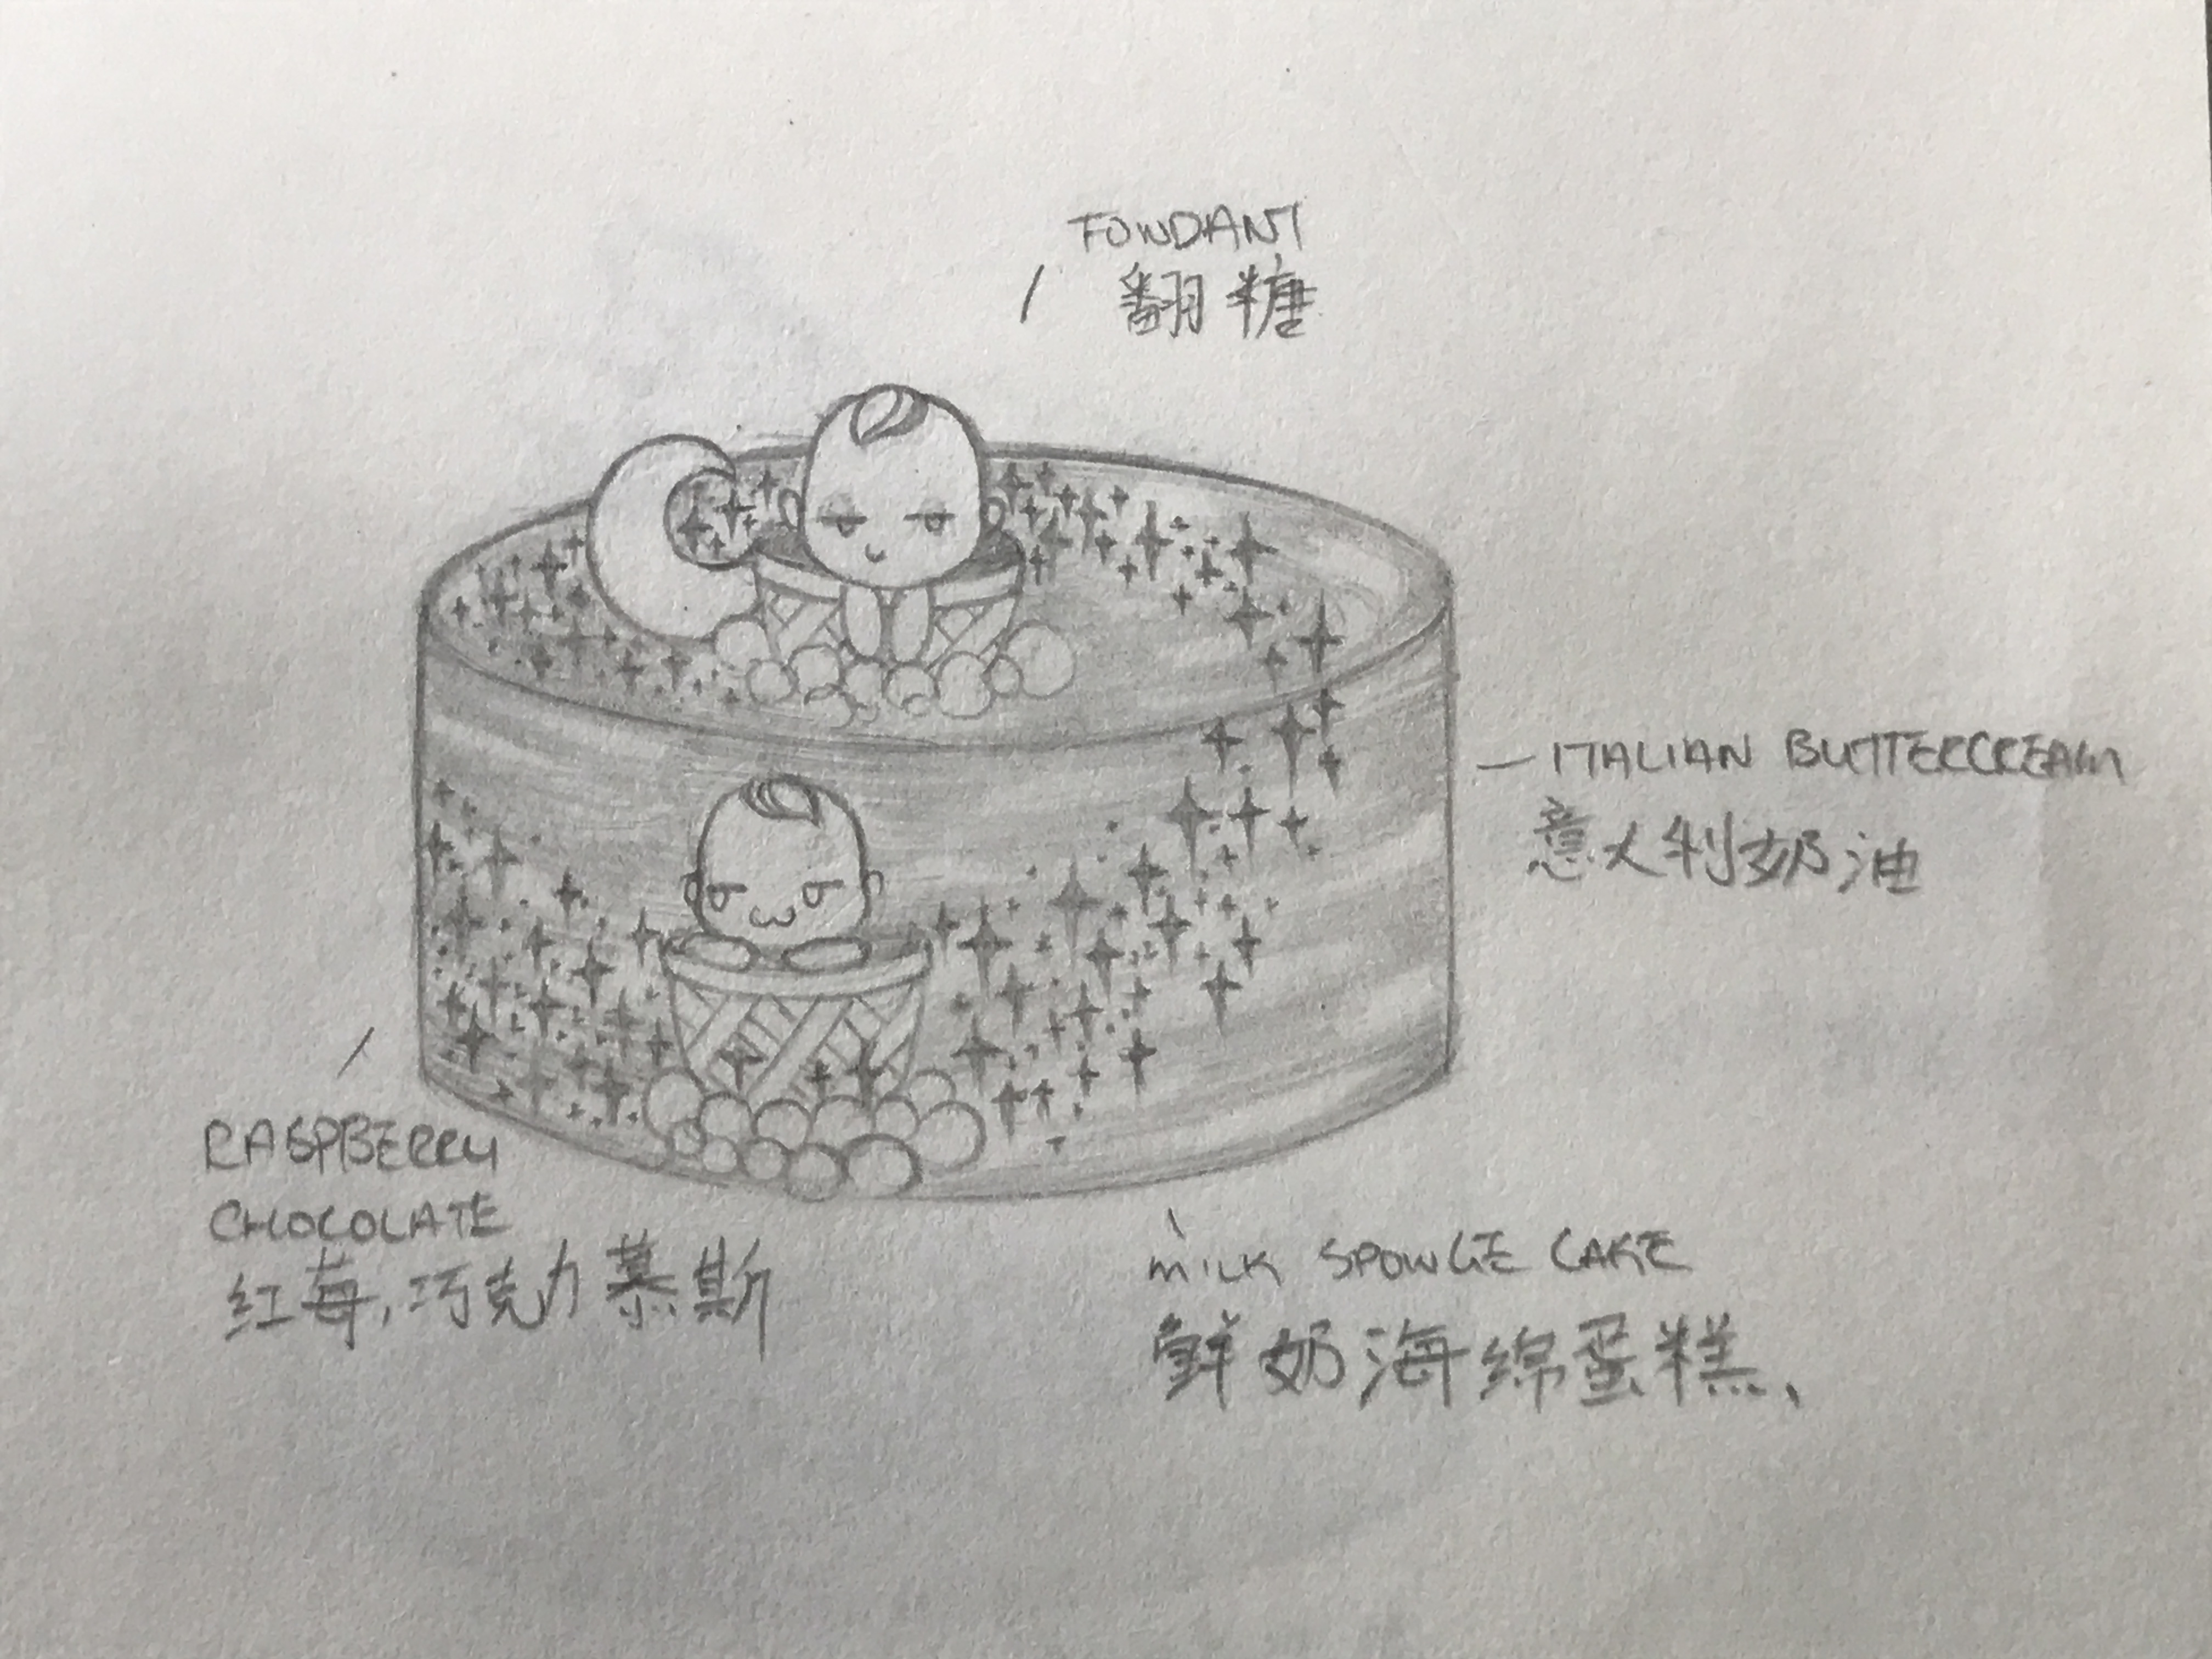 FONDANT
翻糖
ITALIAN BUTTERCREAM
意大利奶油
RASPBERRY
CHOCOLATE
红莓,巧克力慕斯
MILK SPONGE CAKE
鲜奶海绵蛋糕、